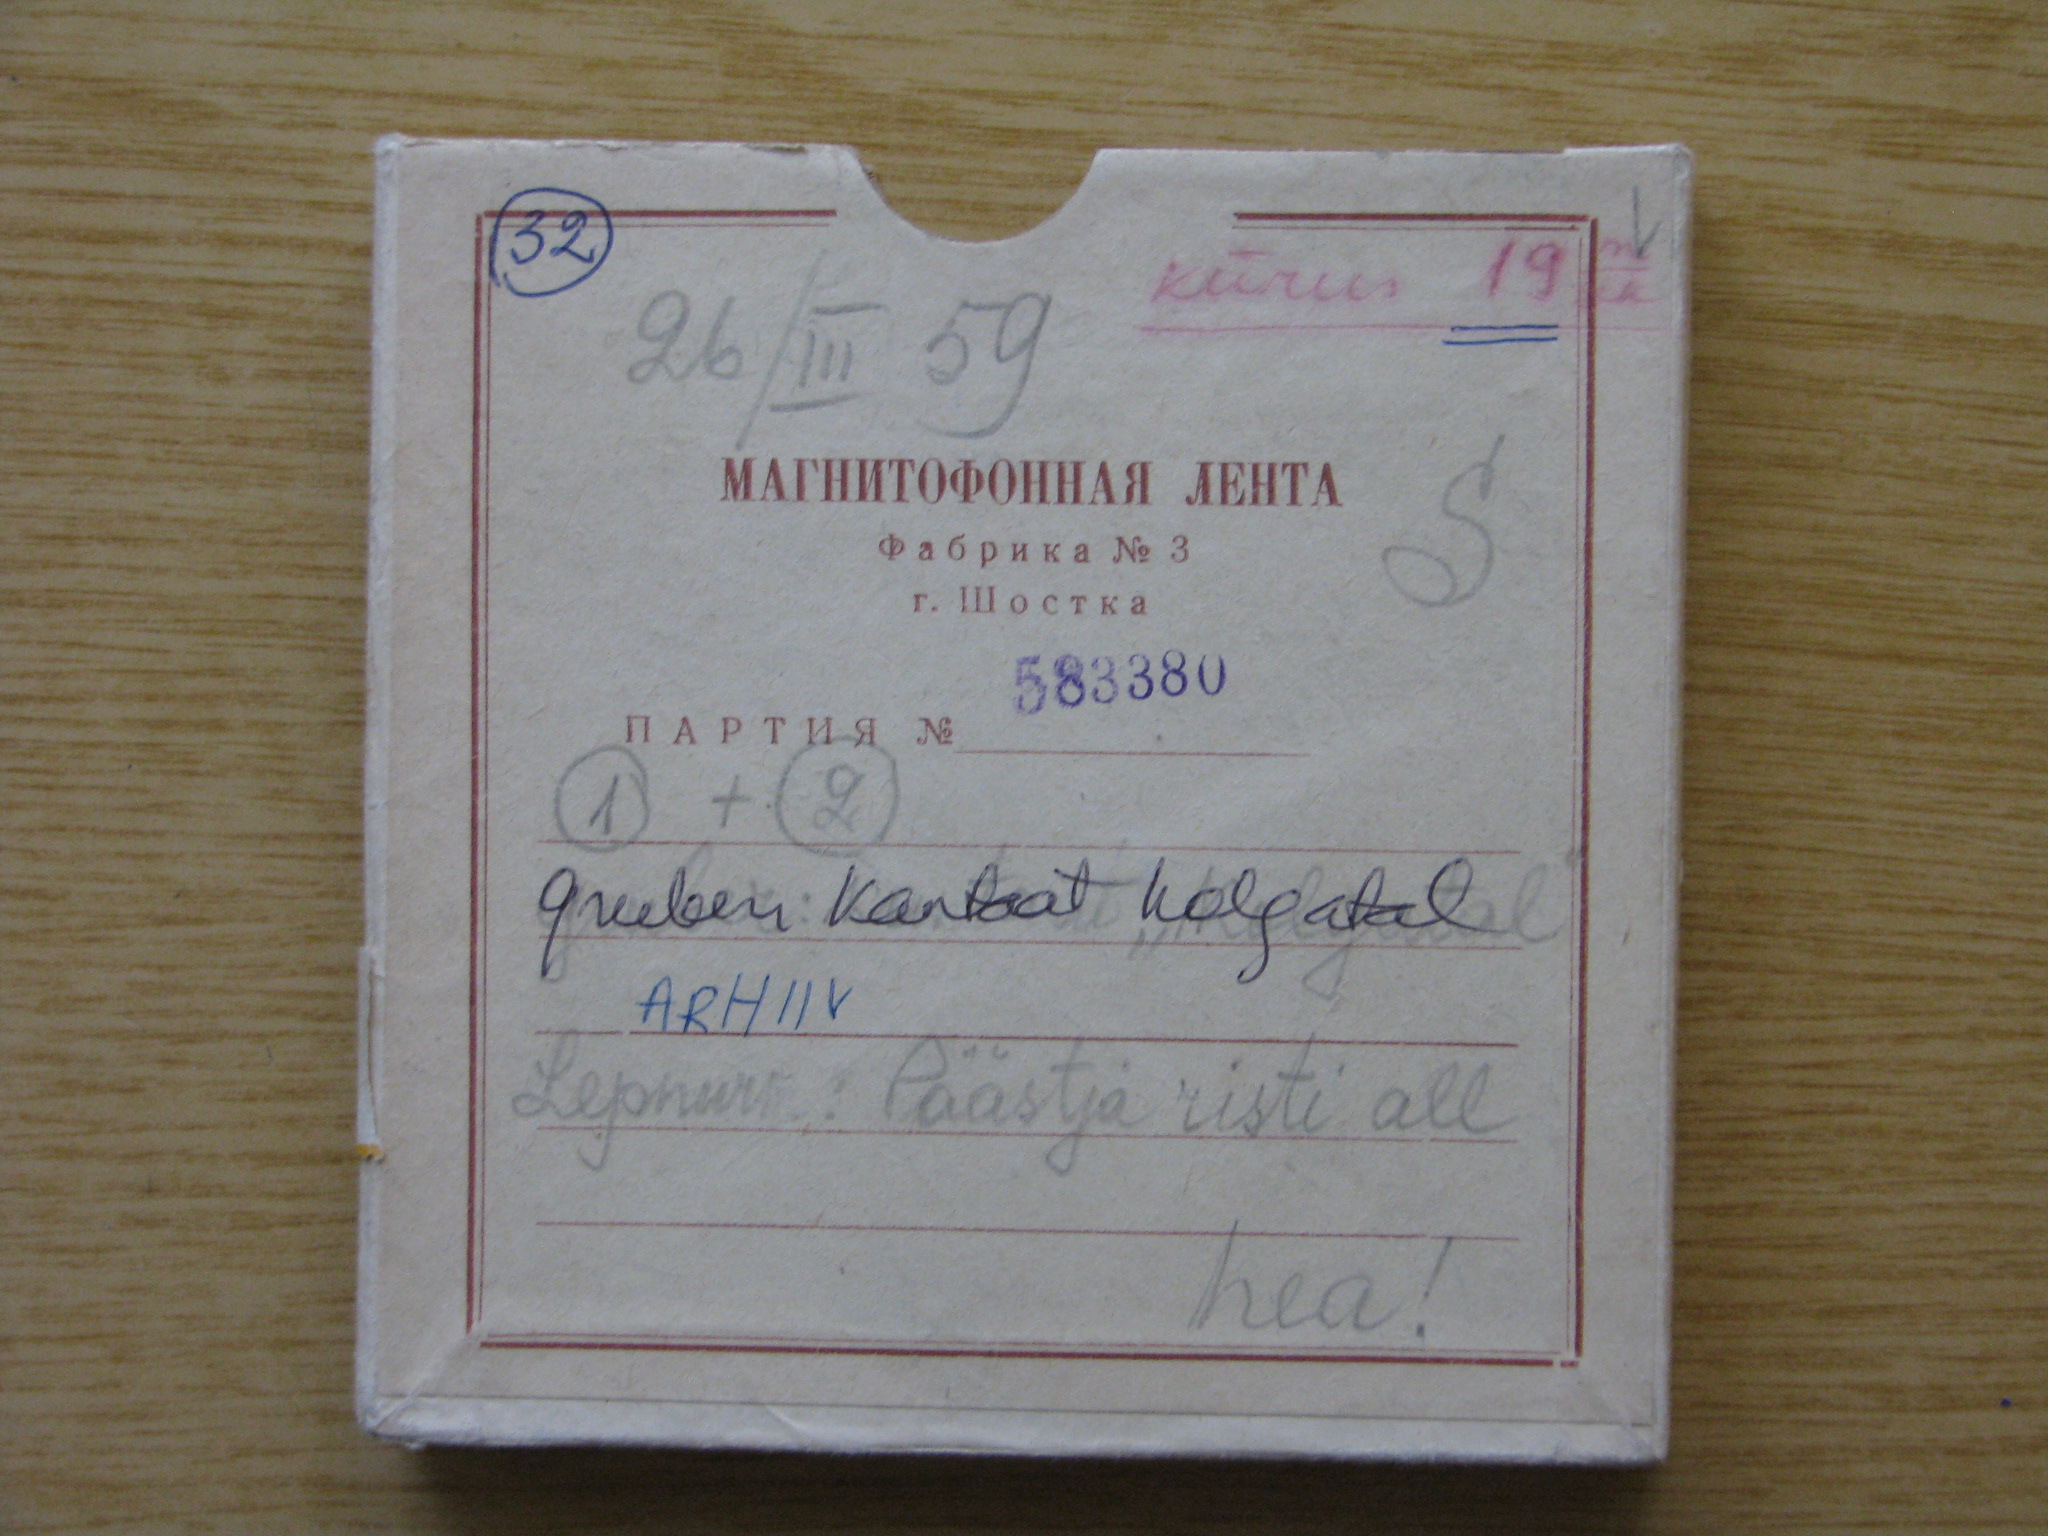 32
kiirus 19
26/III 59
МАГНИТОФОННАЯ ЛЕНТА
Фабрика № 3
г. Шостка
583380
ПАРТИЯ №
1 + 2
Kantaat Kolgatal
ARHIIV
Päästja risti all
hea!